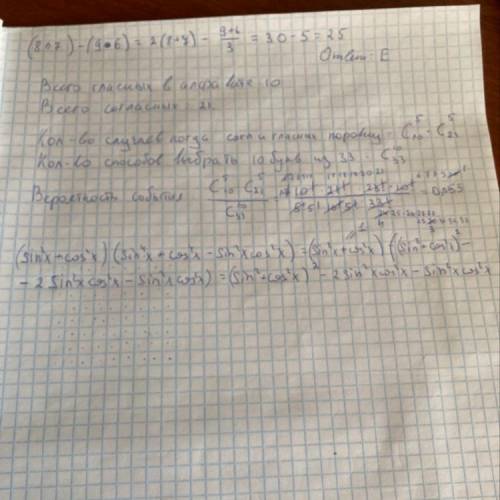 (8∘7) - (9•6) = 2(8+7) - (9+6)/3 = 30 - 5 = 25
Ответ: E
Всего гласных в алфавите 10
Всего согласных 21
Кол-во случаев когда согл и гласных поровну = C₁₀⁵ · C₂₁⁵
Кол-во способов выбрать 10 букв из 33 - C₃₃¹⁰
Вероятность события (C₁₀⁵ C₂₁⁵)/C₃₃¹⁰ = = 0,055
(sin²x+cos²x)(sin⁴x+cos⁴x - sin²x cos²x) = (sin²x+cos²x)((sin²+cos²)² -
- 2 sin²x cos²x - sin²x cos²x) = (sin²+cos²x)² - 2 sin²x cos²x - sin²x cos²x